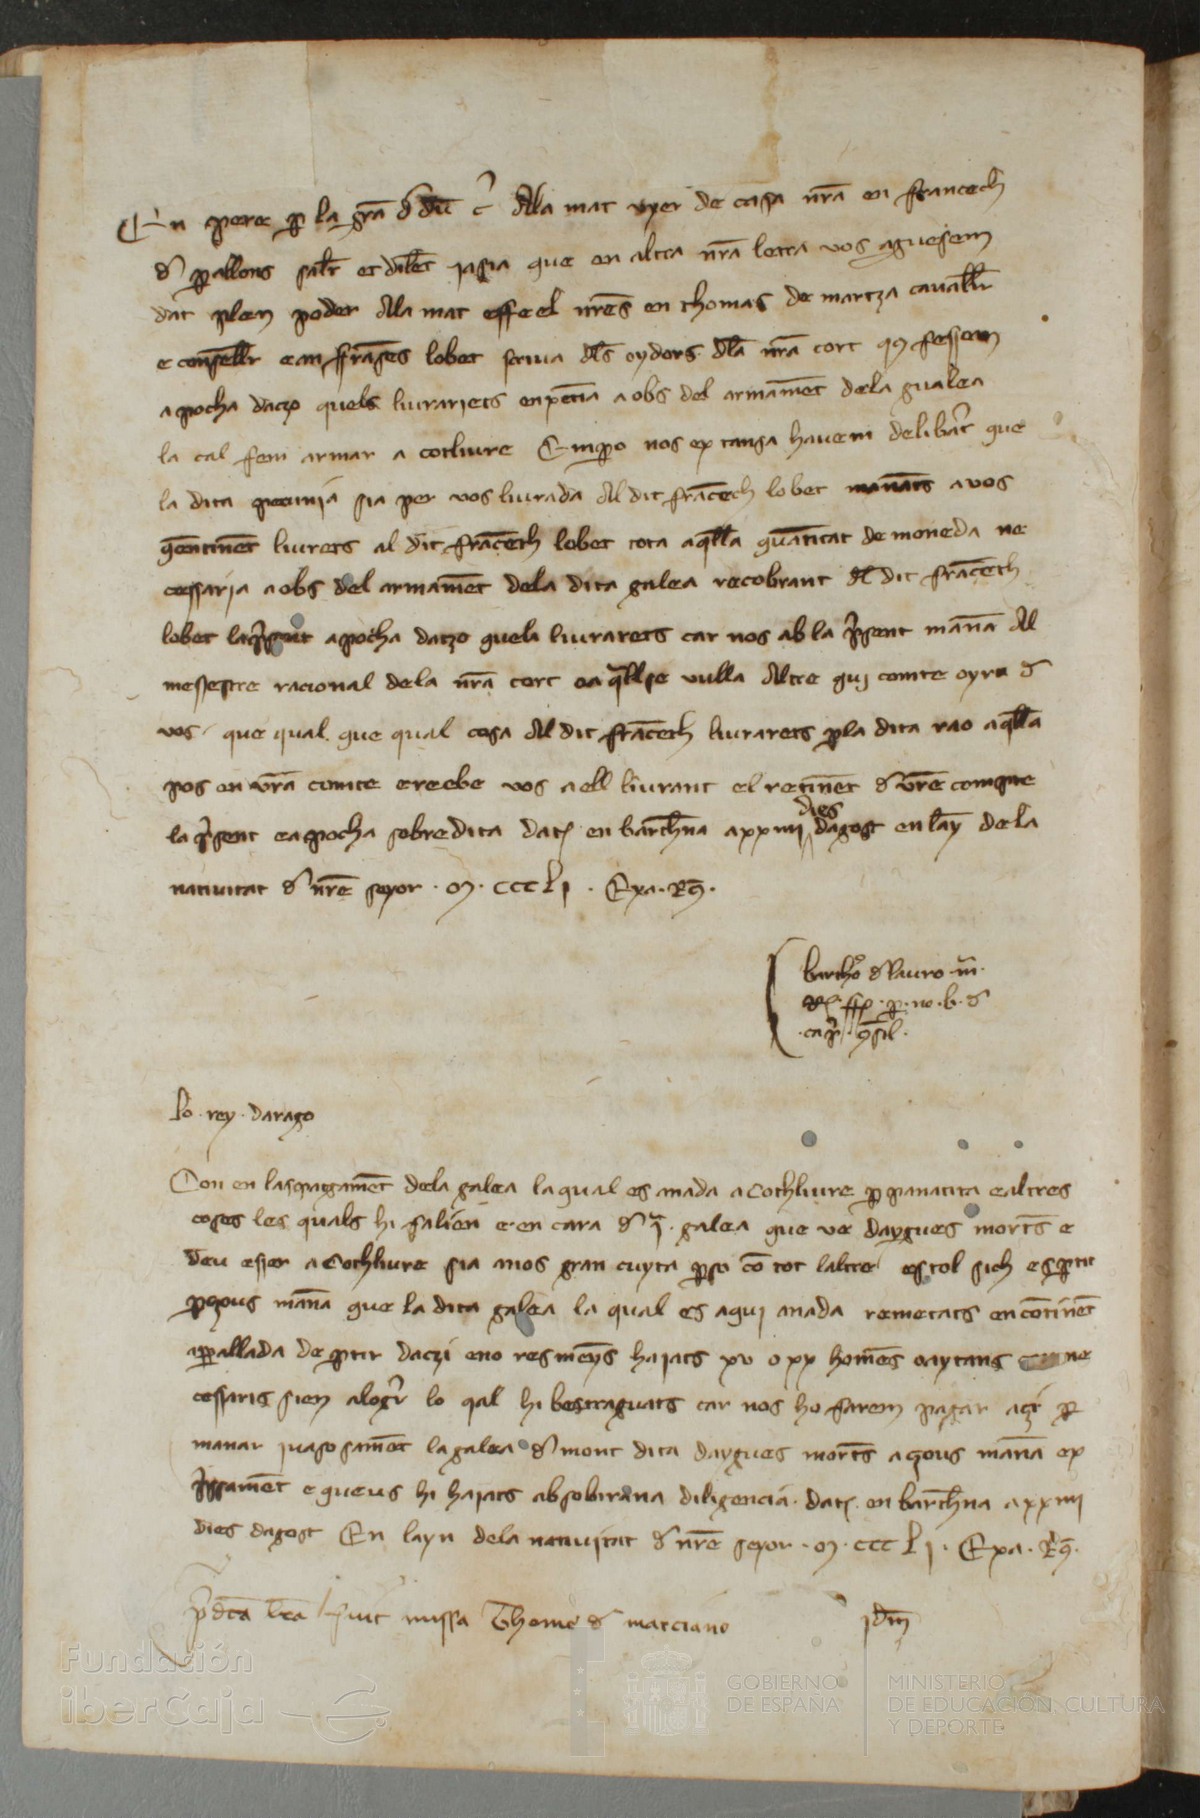 En pere p la gra d deu c Al amat uxer de casa nra en francech
d ppallons salt et dilet jasia que en altra nra letra vos aguesem
dat plen poder Al amat effeel nres en thomas de martza cavalr
e conseller e an ffrances lobet scriva dls oydors dla nra cort q fessem
apocha daczo quels liurariets en pecunia a obs del armament de la gualea
la cal fem armar a cotliure Empero nos ex canga havem deliberat que
la dita pecunia sia per vos liurada Al dit francech lobet manam a vos
q encontinent liurets al dit francech lobet tota aqlla quantitat de moneda ne
cessaria a obs del armament de la dita galea recobrant dl dit francech
lobet la present apocha daczo quela liurarets car nos ab la present manam Al
mestre racional de la nra cort o a qllse vulla Altre qui comte oyra d
vos que qual que qual cosa Al dit francech liurarets p la dita rao aqlla
pos en vra comte e reebe vos a ell liurant el retinent d vre compte
la present e apocha sobredita dat en barchna a xxiiii dies dagost en lay de la
nativitat d nre seyor · M · CCC L I · Exa · Rg ·
bartho d lauro m
ex
Lo · rey · darago
Con en lespatgament de la galea la qual es anada a Cochliure p panatica e altres
coses les quals hi falien e encara d i galea que ve daygues mortes e
deu esser a Cochliure sia mes gran cuyta pso co tot laltre estol sich es ptit
p q us manam que la dita galea la qual es aqui anada remetats encontinent
appallada de ptir daczi e no res menys hajats xv o xx homes o aytans ne
cessaris sien a logr lo qal hi bestraguats car nos ho farem pagar aci p
manar ivasosament la galea d mont dita daygues mortes a q us manam ex
pssament e que us hi hajats ab sobirana diligencia · dat en barchna a xxiiii
dies dagost En layn de la nativitat d nre seyor · M · CCC L I · Exa · Rg ·
pdca lra fuit missa Thome d marciano idm
Fundación
iberCaja
GOBIERNO
DE ESPAÑA
MINISTERIO
DE EDUCACIÓN, CULTURA
Y DEPORTE